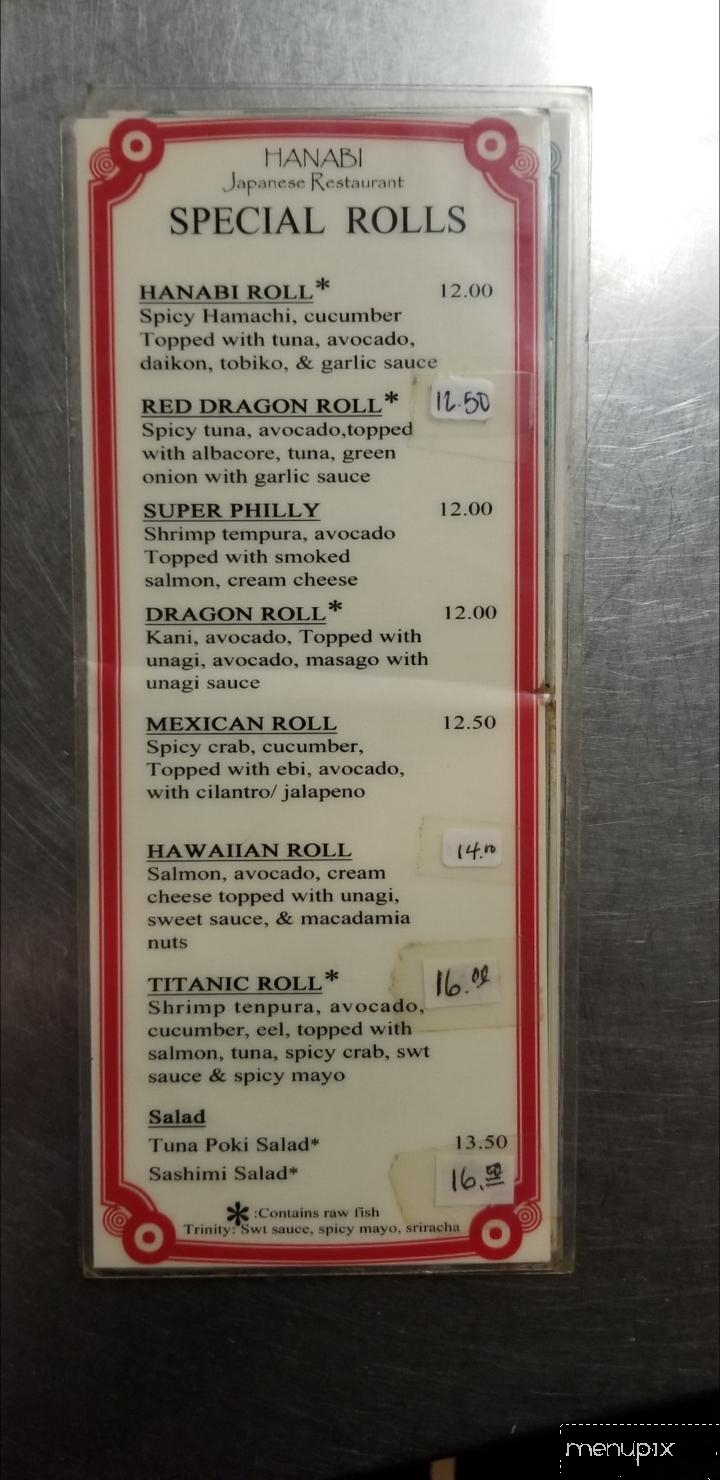 HANABI
Japanese Restaurant
SPECIAL ROLLS
HANABI ROLL* 12.00
Spicy Hamachi, cucumber
Topped with tuna, avocado,
daikon, tobiko, & garlic sauce
RED DRAGON ROLL* 12.50
Spicy tuna, avocado,topped
with albacore, tuna, green
onion with garlic sauce
SUPER PHILLY 12.00
Shrimp tempura, avocado
Topped with smoked
salmon, cream cheese
DRAGON ROLL* 12.00
Kani, avocado, Topped with
unagi, avocado, masago with
unagi sauce
MEXICAN ROLL 12.50
Spicy crab, cucumber,
Topped with ebi, avocado,
with cilantro/ jalapeno
HAWAIIAN ROLL 14.00
Salmon, avocado, cream
cheese topped with unagi,
sweet sauce, & macadamia
nuts
TITANIC ROLL* 16.00
Shrimp tenpura, avocado,
cucumber, eel, topped with
salmon, tuna, spicy crab, swt
sauce & spicy mayo
Salad
Tuna Poki Salad* 13.50
Sashimi Salad* 16.50
* :Contains raw fish
Trinity: Swt sauce, spicy mayo, sriracha
menupix